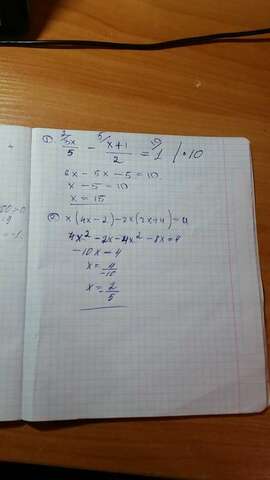 1. ²/3x/5 - ⁵/x+1/2 = ¹⁰/1 | ·10
6x - 5x - 5 = 10
x - 5 = 10
x = 15
2. x(4x-2)-2x(2x+4)=4
4x² - 2x - 4x² - 8x = 4
-10x = 4
x = 4/-10
x = -2/5
-1.